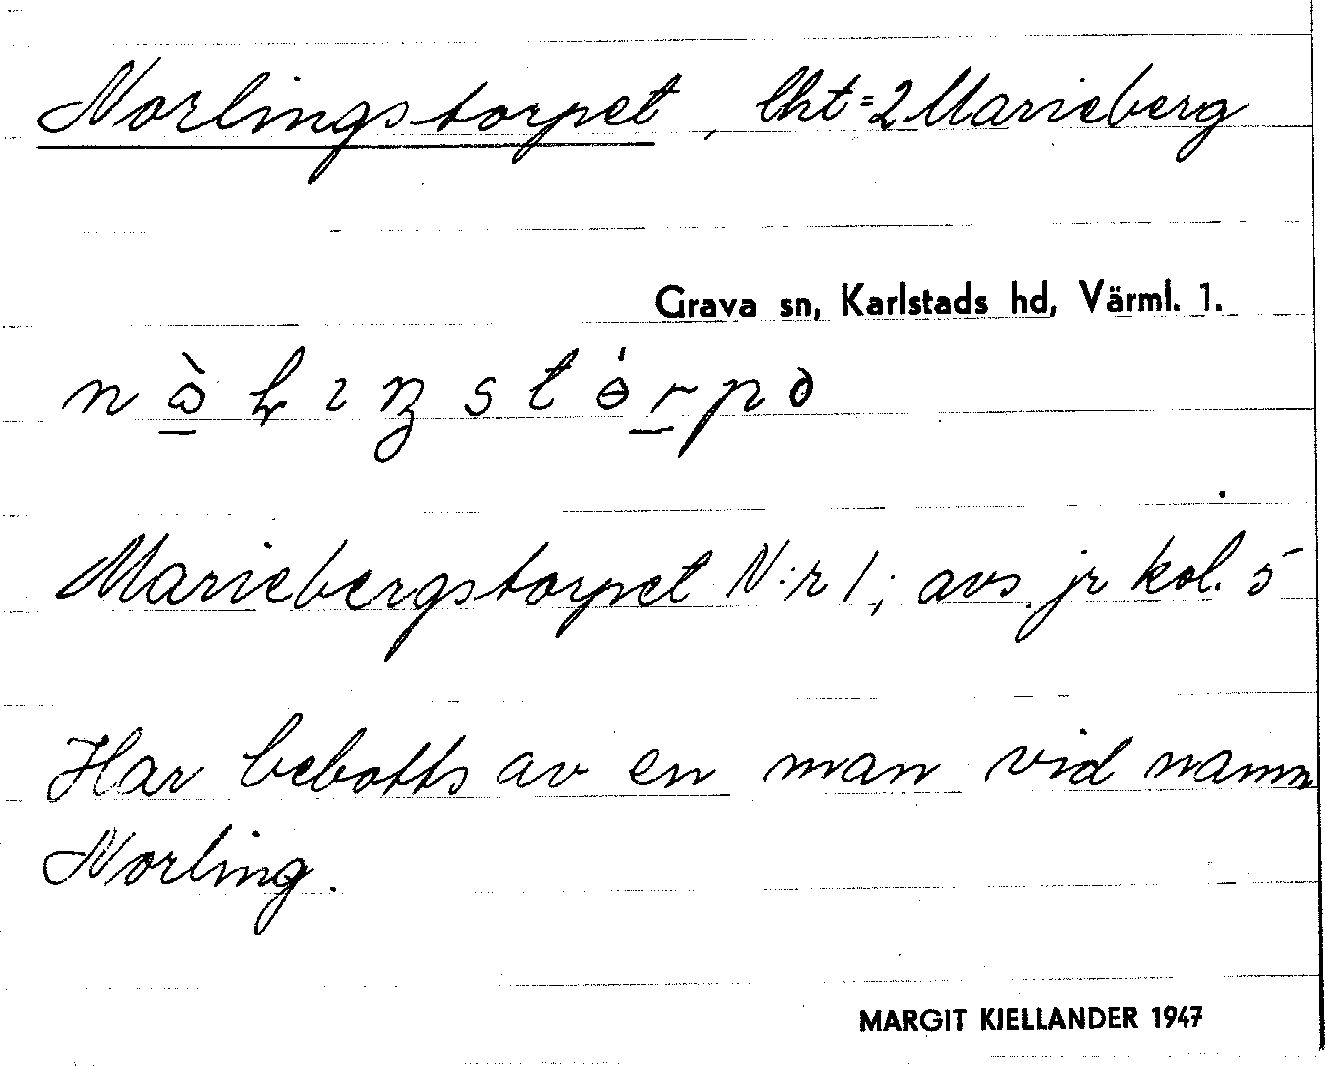 Norlingstorpet, lht=2 Marieberg
Grava sn, Karlstads hd, Värml. 1.
Mariebergstorpet N:r 1; avs. jr kol. 5
Har bebotts av en man vid namn
Norling.
MARGIT KJELLANDER 1947